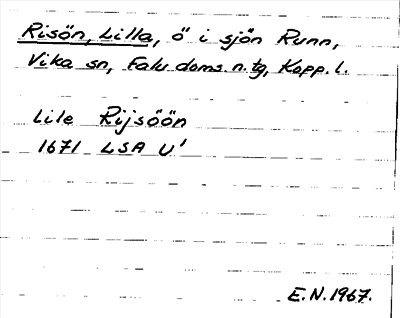 Risön, Lilla, ö i sjön Runn,
Vika sn, Falu doms. n. tg, Kopp. l.
Lile Rijsöön
1671 LSA U'
E.N. 1967.